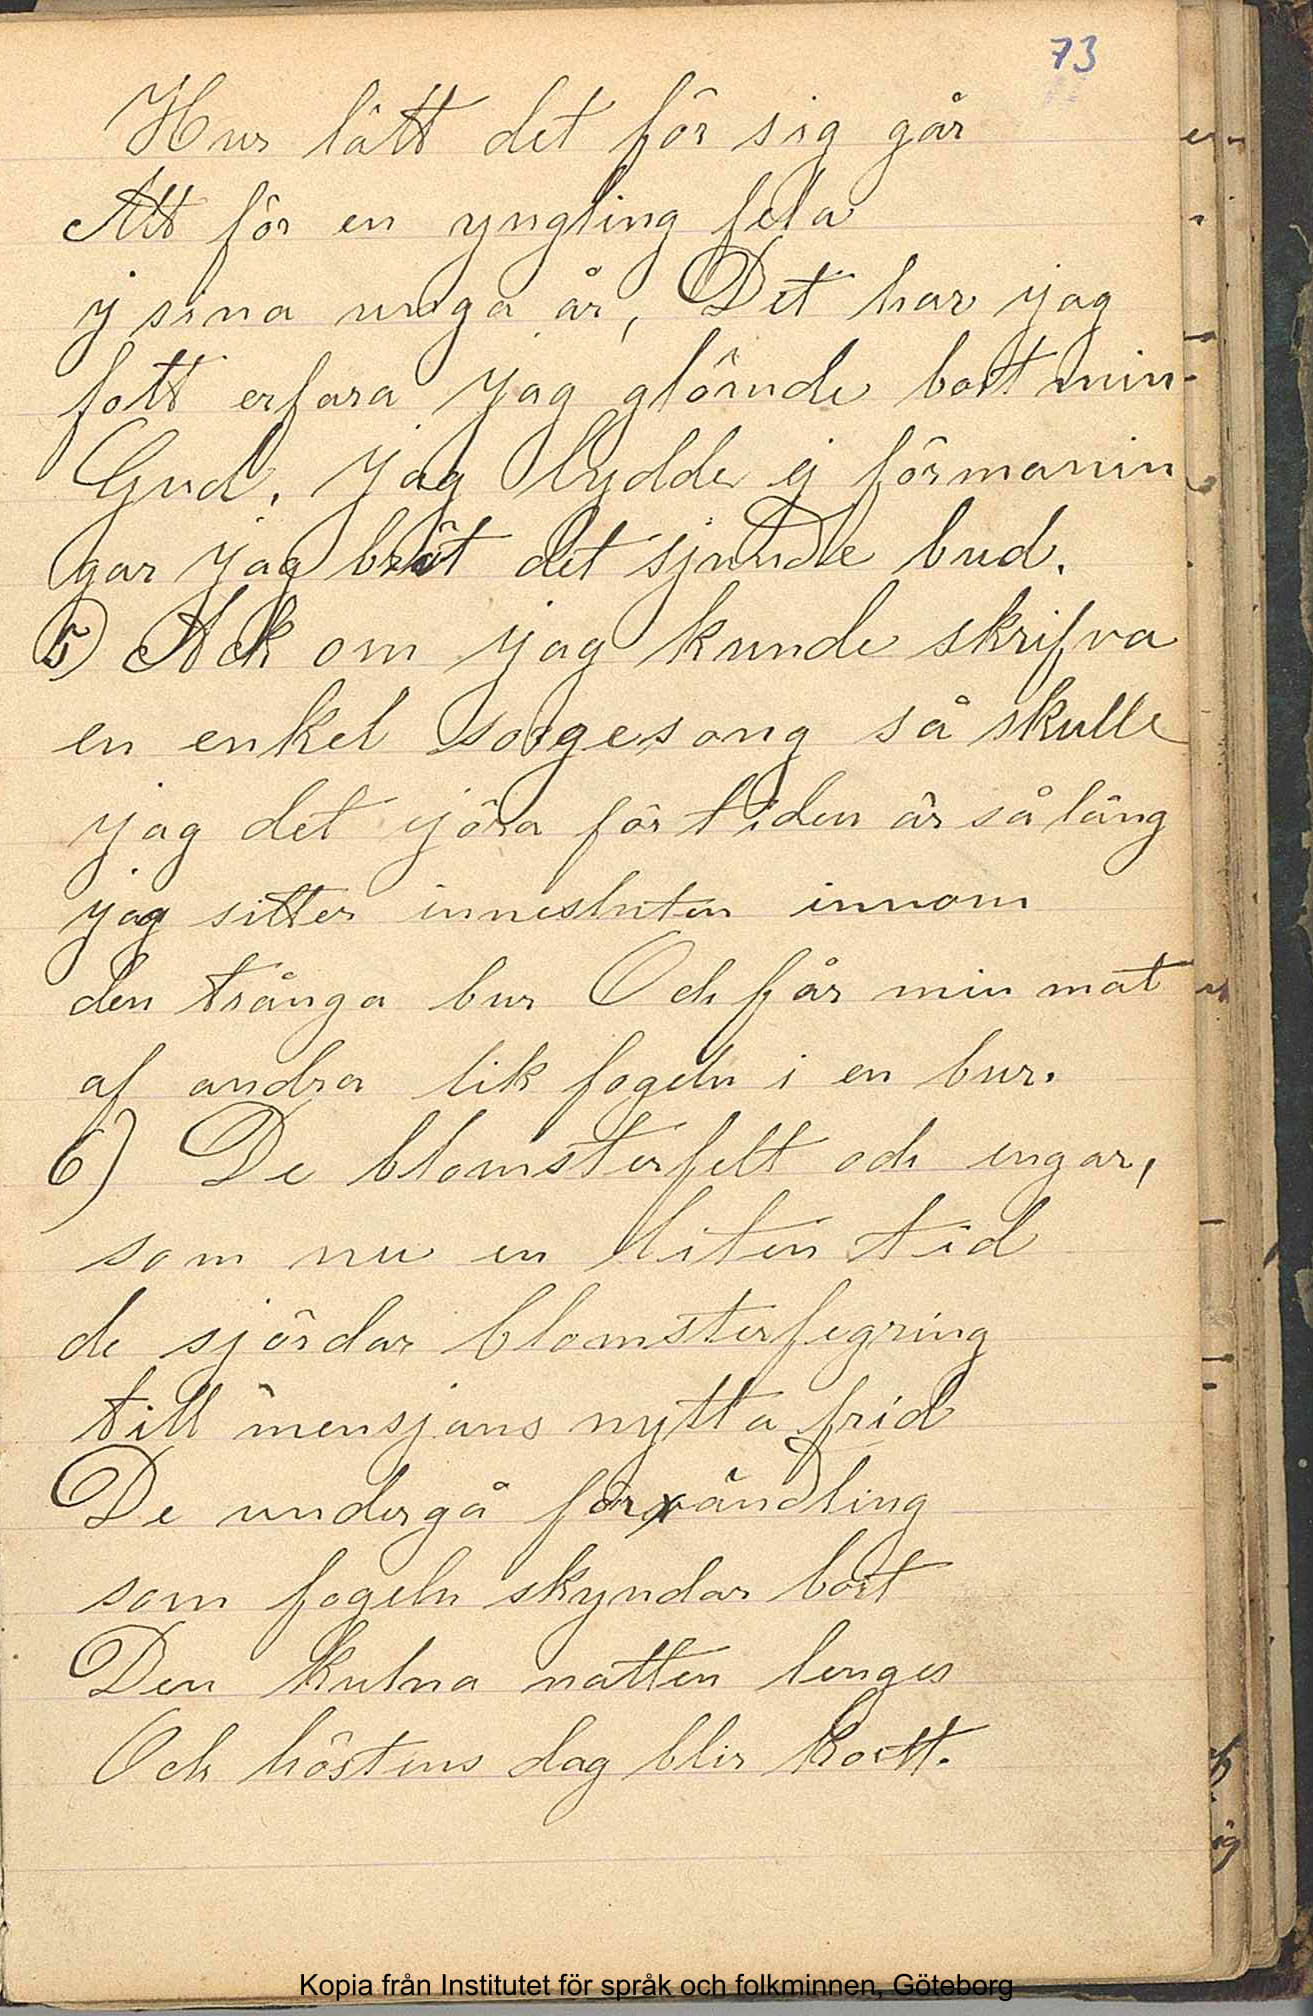 73
Hur lätt det för sig går
Att för en yngling fela
j sina unga år, Det har jag
fott erfara jag glömde bort min
Gud. jag lydde ej förmanin
gar jag bröt det sjunde bud.
5) Ack om jag kunde skrifva
en enkel sorgesong så skulle
jag det jöra för tiden är så lång
jag sitter innesluten innom
den trånga bur Och får min mat
af andra lik fogeln i en bur.
6) De blomsterfelt och engar,
som nu en liten tid
de sjördar blomsterfegring
till mensjans nytta frid
De undergå förvändling
som fogeln skyndar bort
Den kulna natten lenges
Och höstens dag blir kortt.
Kopia från Institutet för språk och folkminnen, Göteborg